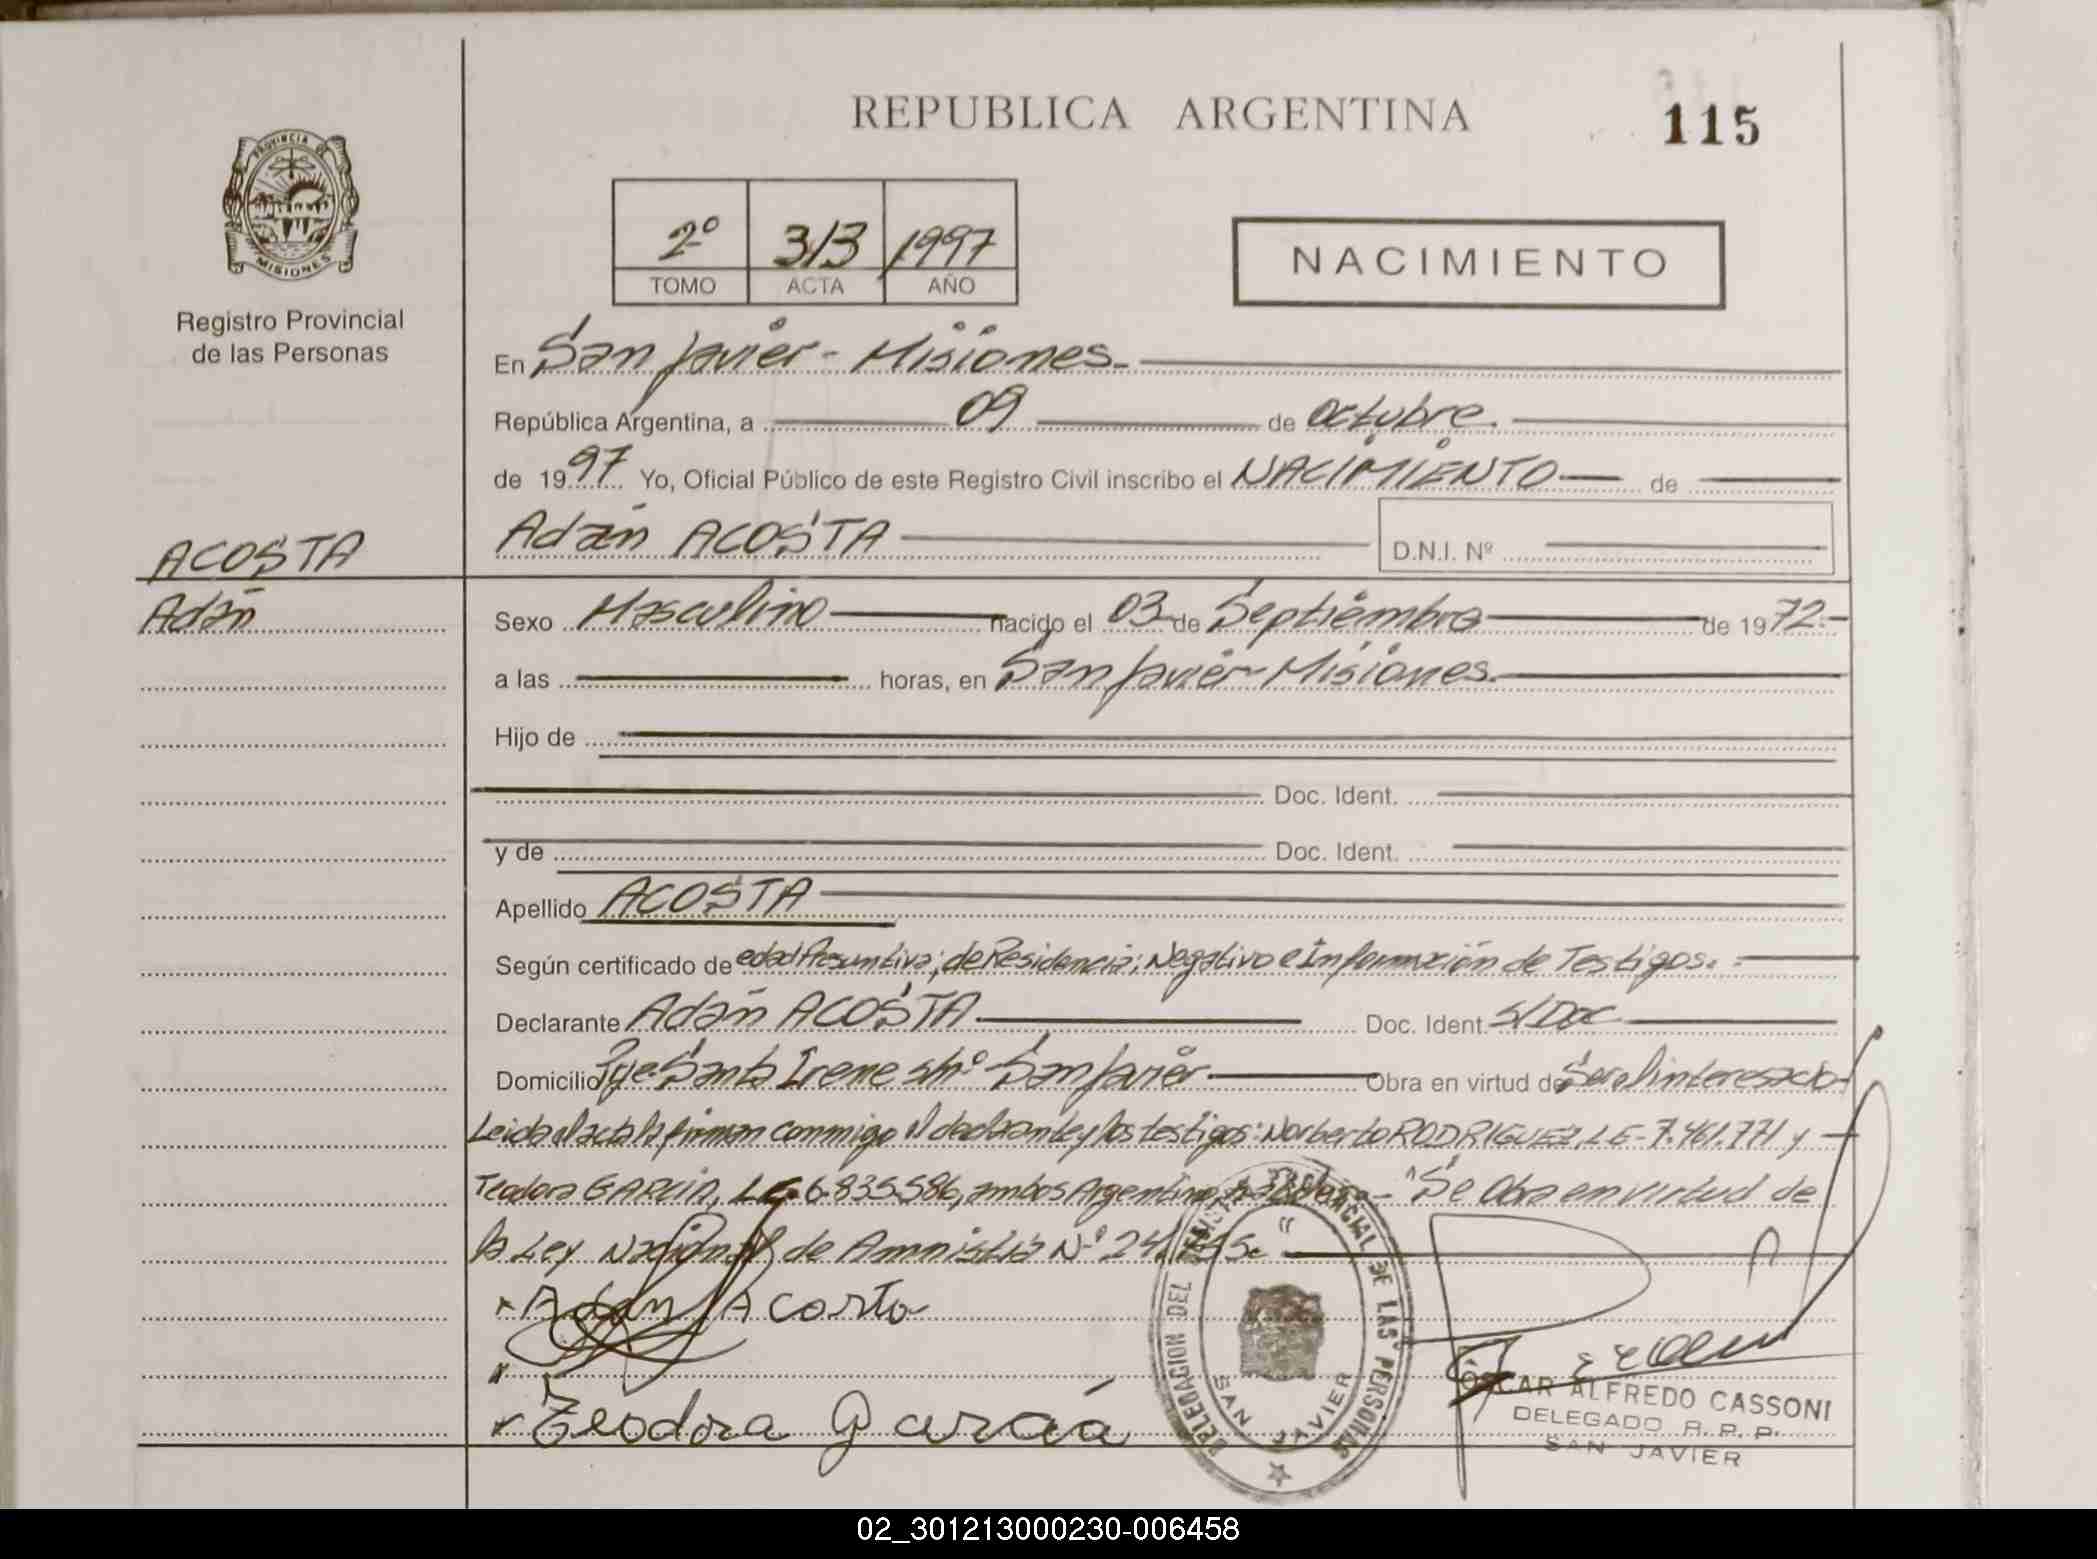 REPUBLICA ARGENTINA
115
PROVINCIA DE
MISIONES
Registro Provincial
de las Personas
2º 313 1997
TOMO ACTA AÑO
NACIMIENTO
En San Javier - Misiones.-
República Argentina, a 09 de Octubre.
de 1997 Yo, Oficial Público de este Registro Civil inscribo el NACIMIENTO de
Adán ACOSTA D.N.I. Nº
ACOSTA
Adán
Sexo Masculino nacido el 03 de Septiembre de 1972.-
a las horas, en San Javier - Misiones.
Hijo de
Doc. Ident.
y de Doc. Ident.
Apellido ACOSTA
Según certificado de edad Presuntiva; de Residencia; Negativo e Información de Testigos.-
Declarante Adán ACOSTA Doc. Ident. S/Doc
Domicilio Pje Santa Irene s/nº San Javier Obra en virtud de Ser el interesado
Leida el acta la firman conmigo el declarante y los testigos: Norberto RODRIGUEZ, LE - 7.461.771 y
Teodora GARCIA, LC 6.835.586, ambos Argentinos - "Se Obra en virtud de
la Ley Nacional de Amnistia Nº
Adan Acosta
Teodora Garcia
DELEGACION DEL REGISTRO PROVINCIAL DE LAS PERSONAS
SAN JAVIER
OSCAR ALFREDO CASSONI
DELEGADO R. P. P.
SAN JAVIER
02_301213000230-006458